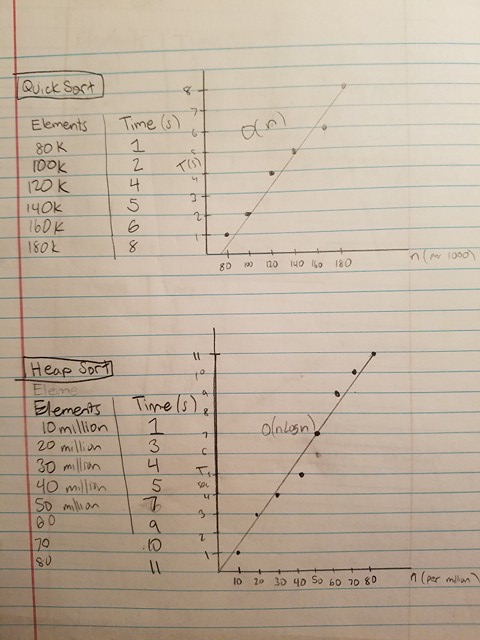 Quick Sort
Elements Time (s)
80K 1
100K 2
120K 4
140K 5
160K 6
180K 8
8
7
6
5
T(s)
4
3
2
1
O(n)
80 100 120 140 160 180
n (per 1000)
Heap Sort
Eleme
Elements Time (s)
10 million 1
20 million 3
30 million 4
40 million 5
50 million 7
60 9
70 10
80 11
11
10
9
8
7
6
4
3
2
1
O(nlogn)
10 20 30 40 50 60 70 80
n (per million)